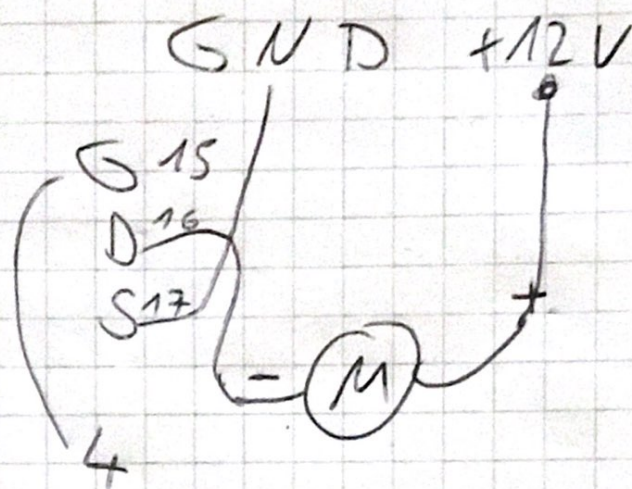 GND +12V
G 15
D 16
S 17
+
- M
4